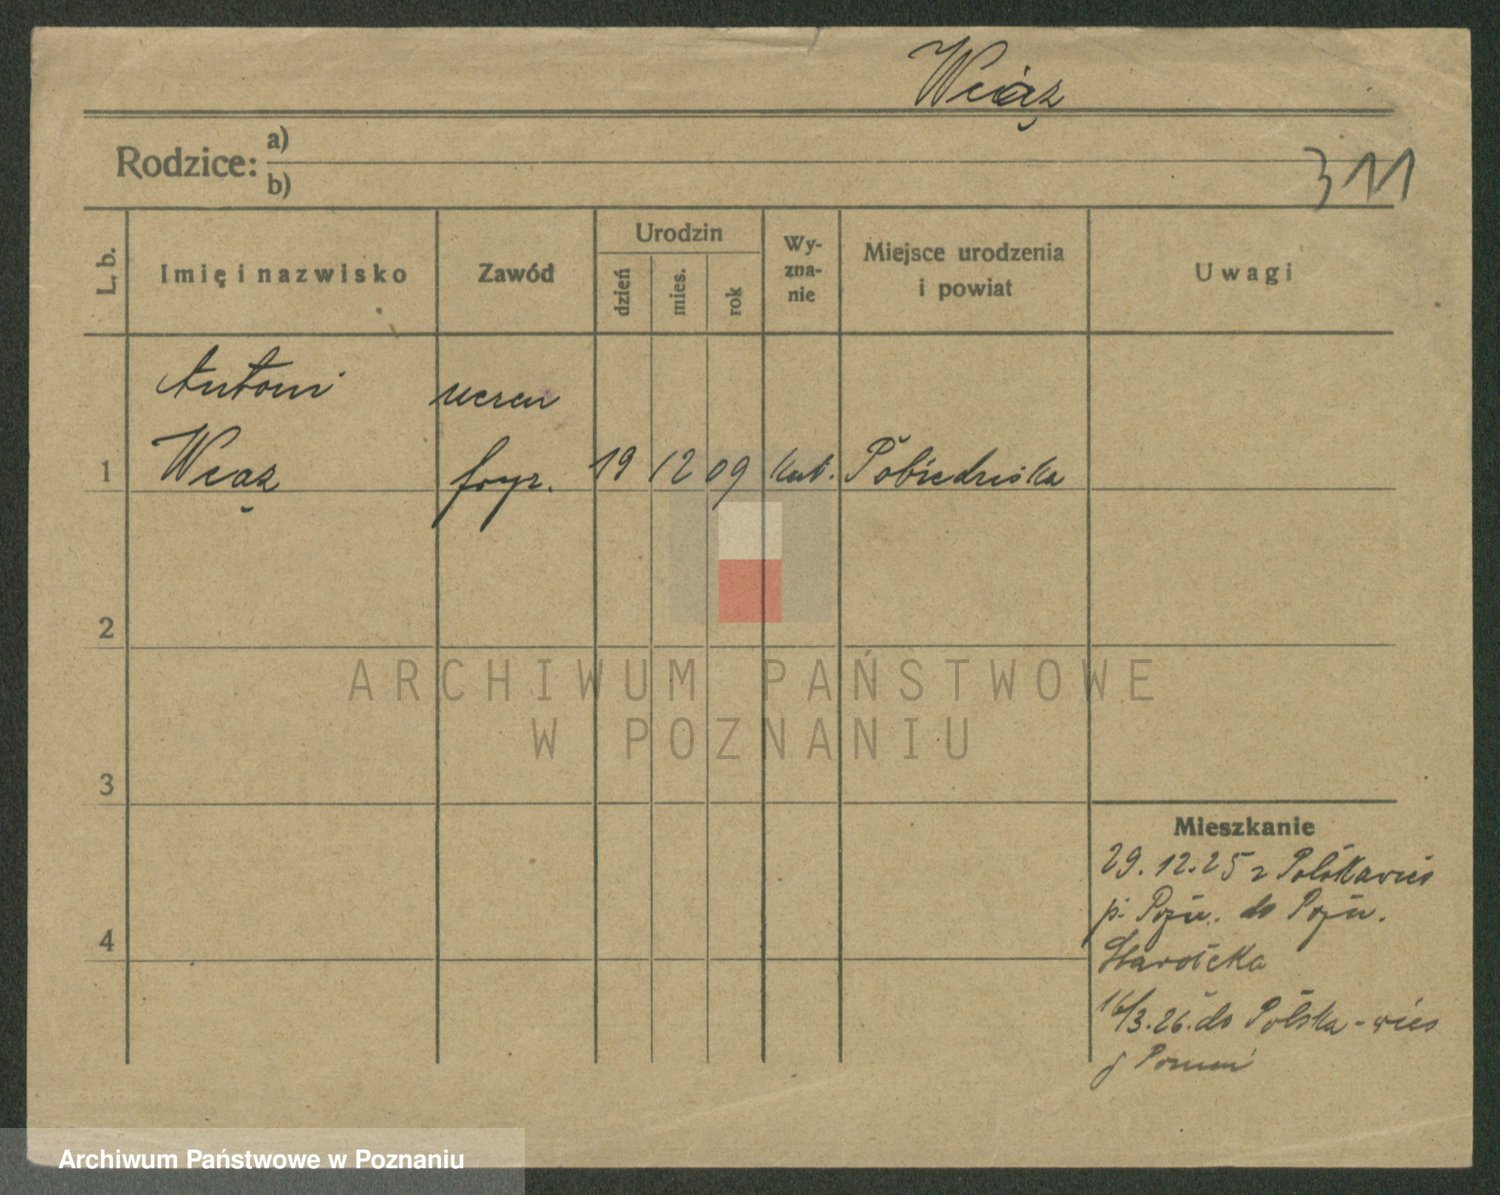 Wciąż
Rodzice: a)
b)
311
L. b.
Imię i nazwisko
Zawód
Urodzin
dzień
mies.
rok
Wy-
zna-
nie
Miejsce urodzenia
i powiat
Uwagi
Antoni uczeń
1 Wciąż fryz. 19 12 09 kat. Pobiedziska
2
ARCHIWUM PAŃSTWOWE
W POZNANIU
3
Mieszkanie
29.12.25 z Polskawieś
p. Pozn. do Pozn.
4
Starołęka
16/3.26. do Polska-wieś
p Poznań
Archiwum Państwowe w Poznaniu